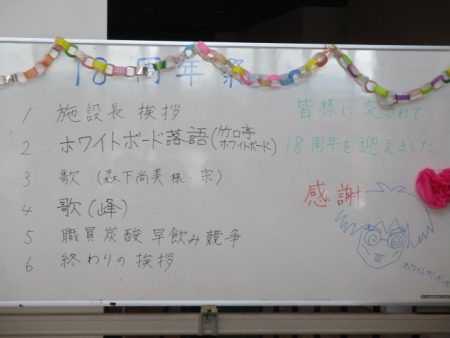 18周年祭
1 施設長 挨拶
2 ホワイトボード落語(竹口亭ホワイトボード)
3 歌 (森下尚美様・宗)
4 歌(峰)
5 職員炭酸早飲み競争
6. 終わりの挨拶
皆様に愛されて
18周年を迎えました。
感謝